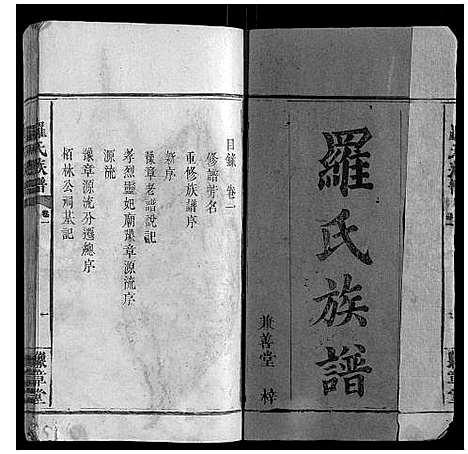 羅氏族譜
兼善堂 梓
目錄 卷一
修譜芳名
重修族譜序
新序
豫章老譜說記
孝烈靈妃廟豫章源流序
源流
豫章源流分遷總序
栢林公祠基記
羅氏族譜
卷一
一
豫章堂